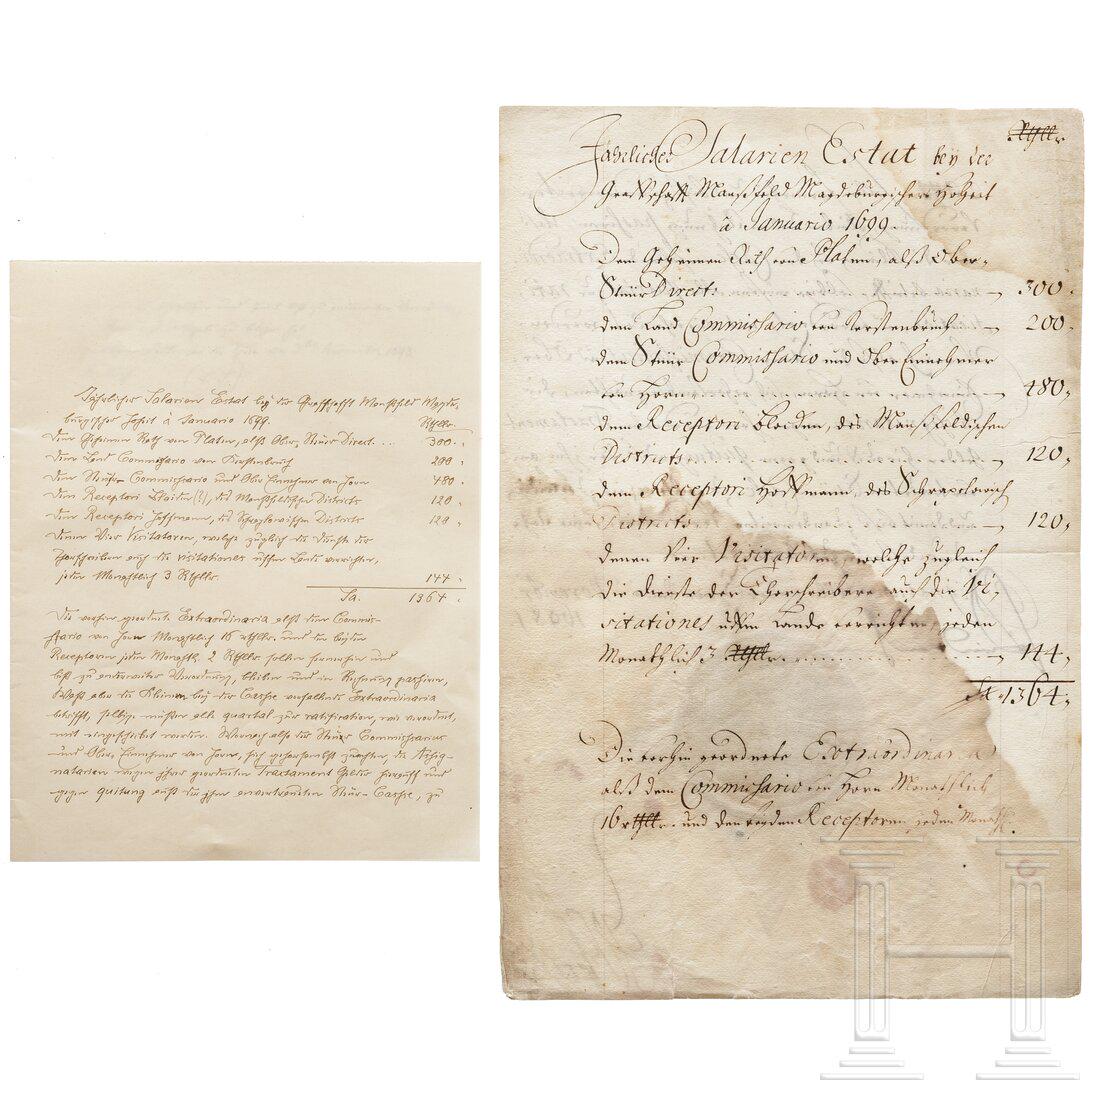 Jährlicher Salarien Estat bey der Graffschafft Mansfeld Magde-
burgischer Hoheit à Januario 1699.
Rthlr.
Dem Geheimen Rath von Platen, alß Ober-Steür Direct... 300.
dem Land Commissario von Kerstenbruch 200.
dem Steür Commissario und Ober Einnehmer von Horn 480.
dem Receptori (?), des Mansfeldischen Districts 120.
dem Receptori Hoffmann, des Districts 120.
denen Vier Visitatoren, welche zugleich die Dienste der
Thorschreiber auch die Visitationes uffm Lande verrichten,
jeden Monathlich 3 Rthlr.
144.
Sa. 1364.
Die vorhin geordnete Extraordinaria alß dem Commis-
sario von Horn Monathlich 16 rthlr. und den beyden
Receptoren jeden Monathl. 2 Rthlr. sollen fernerhin und
biß zu anderweiter Verordnung, bleiben und in Rechnung passiren,
Waß aber die kleinen bey der Casse vorfallende Extraordinaria
betrifft, selbige müßen alle quartal zur ratification, wie verordnet,
mit eingeschickt werden. Wornach also der Steür Commissarius
und Ober Einnehmer von Horn, sich zu achten, die Assig-
natarien wegen ihrer geordneten Tractament Gelder und
gegen quitung auß der ihm anvertrauten Steür-Casse, zu
Jährlicher Salarien Estat bey der
Rthlr
Graffschafft Manßfeld Magdeburgischer Hoheit
à Januario 1699.
Dem Geheimen Rath von Platen, alß Ober-
Steür Direct. 300.
dem Land Commissario von Kerstenbruch 200.
dem Steür Commissario und Ober Einnehmer
von Horn 480,
dem Receptori des Manßfeldischen
Districts 120,
dem Receptori Hoffmann, des Schraplowisch
Districts 120,
denen Vier Visitatoren, welche zugleich
die Dienste der Thorschreibere auch die Vi-
sitationes uffm Lande verrichten, jeden
Monathlich 3 Rthlr. 144,
Sa. 1364,
Die vorhin geordnete Extraordinaria
alß dem Commissario von Horn Monathlich
16 rthlr. und den beyden Receptoren jeden Monathl.
H